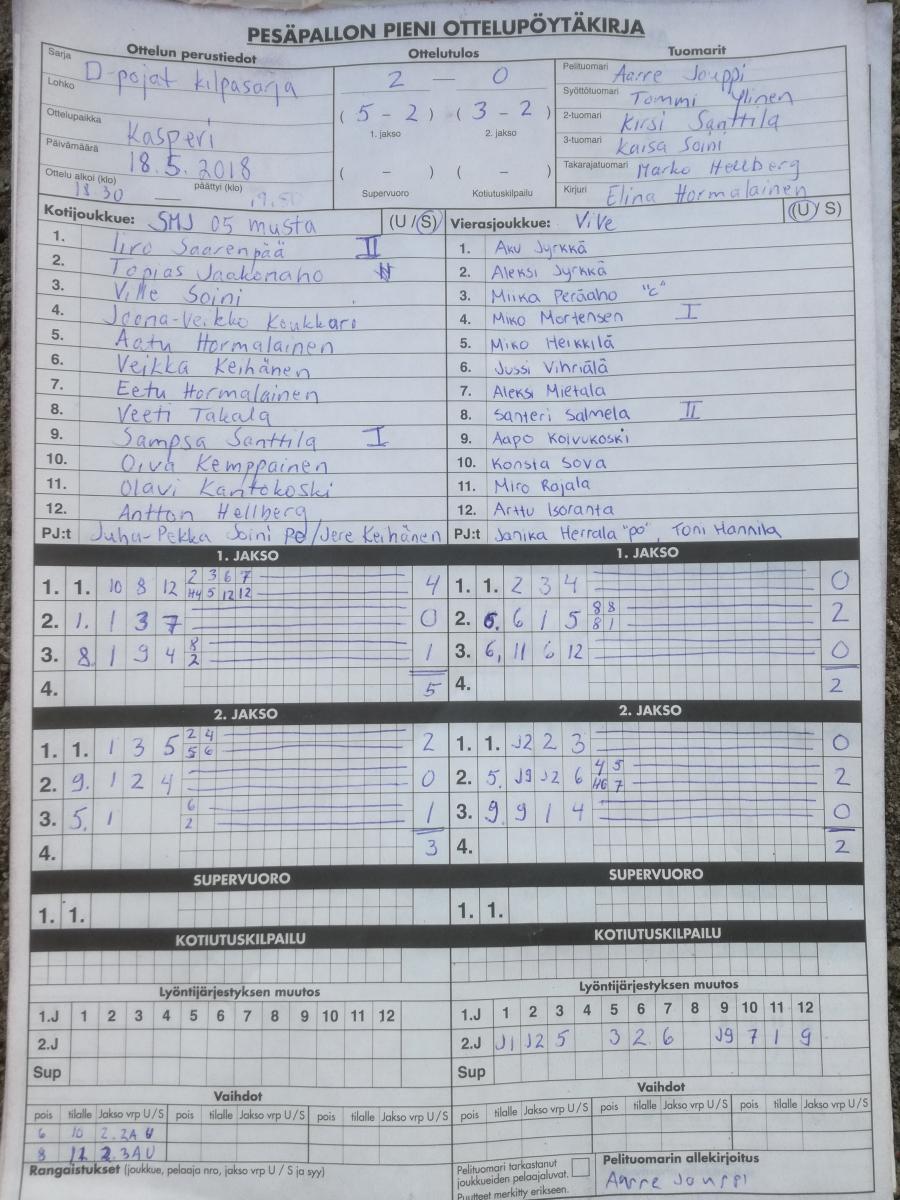 PESÄPALLON PIENI OTTELUPÖYTÄKIRJA
Ottelun perustiedot Ottelutulos Tuomarit
Sarja D-pojat kilpasarja
Lohko
Ottelupaikka Kasperi
Päivämäärä 18.5.2018
Ottelu alkoi (klo) 18.30 — päättyi (klo) 19.50
2 — 0
( 5 - 2 ) ( 3 - 2 )
1. jakso 2. jakso
( - ) ( - )
Supervuoro Kotiutuskilpailu
Pelituomari Aarre Jouppi
Syöttötuomari Tommi Ylinen
2-tuomari Kirsi Santtila
3-tuomari Kaisa Soini
Takarajatuomari Marko Hellberg
Kirjuri Elina Hormalainen
Kotijoukkue: SMJ 05 musta (U / S)
1. Iiro Saarenpää II
2. Topias Jaakonaho
3. Ville Soini
4. Joona-Veikko Koukkari
5. Aatu Hormalainen
6. Veikka Keihänen
7. Eetu Hormalainen
8. Veeti Takala
9. Sampsa Santtila I
10. Oiva Kemppainen
11. Olavi Kantokoski
12. Antton Hellberg
PJ:t Juha-Pekka Soini pe/Jere Keihänen
Vierasjoukkue: ViVe (U / S)
1. Aku Jyrkkä
2. Aleksi Jyrkkä
3. Miika Peräaho "c"
4. Miko Mortensen I
5. Miko Heikkilä
6. Jussi Vihriälä
7. Aleksi Mietala
8. Santeri Salmela II
9. Aapo Koivukoski
10. Konsta Sova
11. Miro Rajala
12. Arttu Isoranta
PJ:t Janika Herrala "po", Toni Hannila
1. JAKSO
1. 1. 10 8 12 2 3 6 7 4
H4 5 12 12
2. 1. 1 3 7 0
3. 8. 1 9 4 8 1
2
4. 5
1. JAKSO
1. 1. 2 3 4 0
2. 5. 6 1 5 8 8 2
8 1
3. 6, 11 6 12 0
4. 2
2. JAKSO
1. 1. 1 3 5 2 4 2
5 6
2. 9. 1 2 4 0
3. 5. 1 6 1
2
4. 3
2. JAKSO
1. 1. J2 2 3 0
2. 5. J9 J2 6 4 5 2
H6 7
3. 9. 9 1 4 0
4. 2
SUPERVUORO SUPERVUORO
1. 1. 1. 1.
KOTIUTUSKILPAILU KOTIUTUSKILPAILU
Lyöntijärjestyksen muutos
1.J 1 2 3 4 5 6 7 8 9 10 11 12
2.J
Sup
Lyöntijärjestyksen muutos
1.J 1 2 3 4 5 6 7 8 9 10 11 12
2.J J1 J2 5 3 2 6 J9 7 1 9
Sup
Vaihdot
pois tilalle Jakso vrp U/S pois tilalle Jakso vrp U/S pois tilalle Jakso vrp U/S
6 10 2.2A U
8 12 2.3A U
Vaihdot
pois tilalle Jakso vrp U/S pois tilalle Jakso vrp U/S pois tilalle Jakso vrp U/S
Rangaistukset (joukkue, pelaaja nro, jakso vrp U / S ja syy)
Pelituomari tarkastanut
joukkueiden pelaajaluvat.
Puutteet merkitty erikseen.
Pelituomarin allekirjoitus
Aarre Jouppi